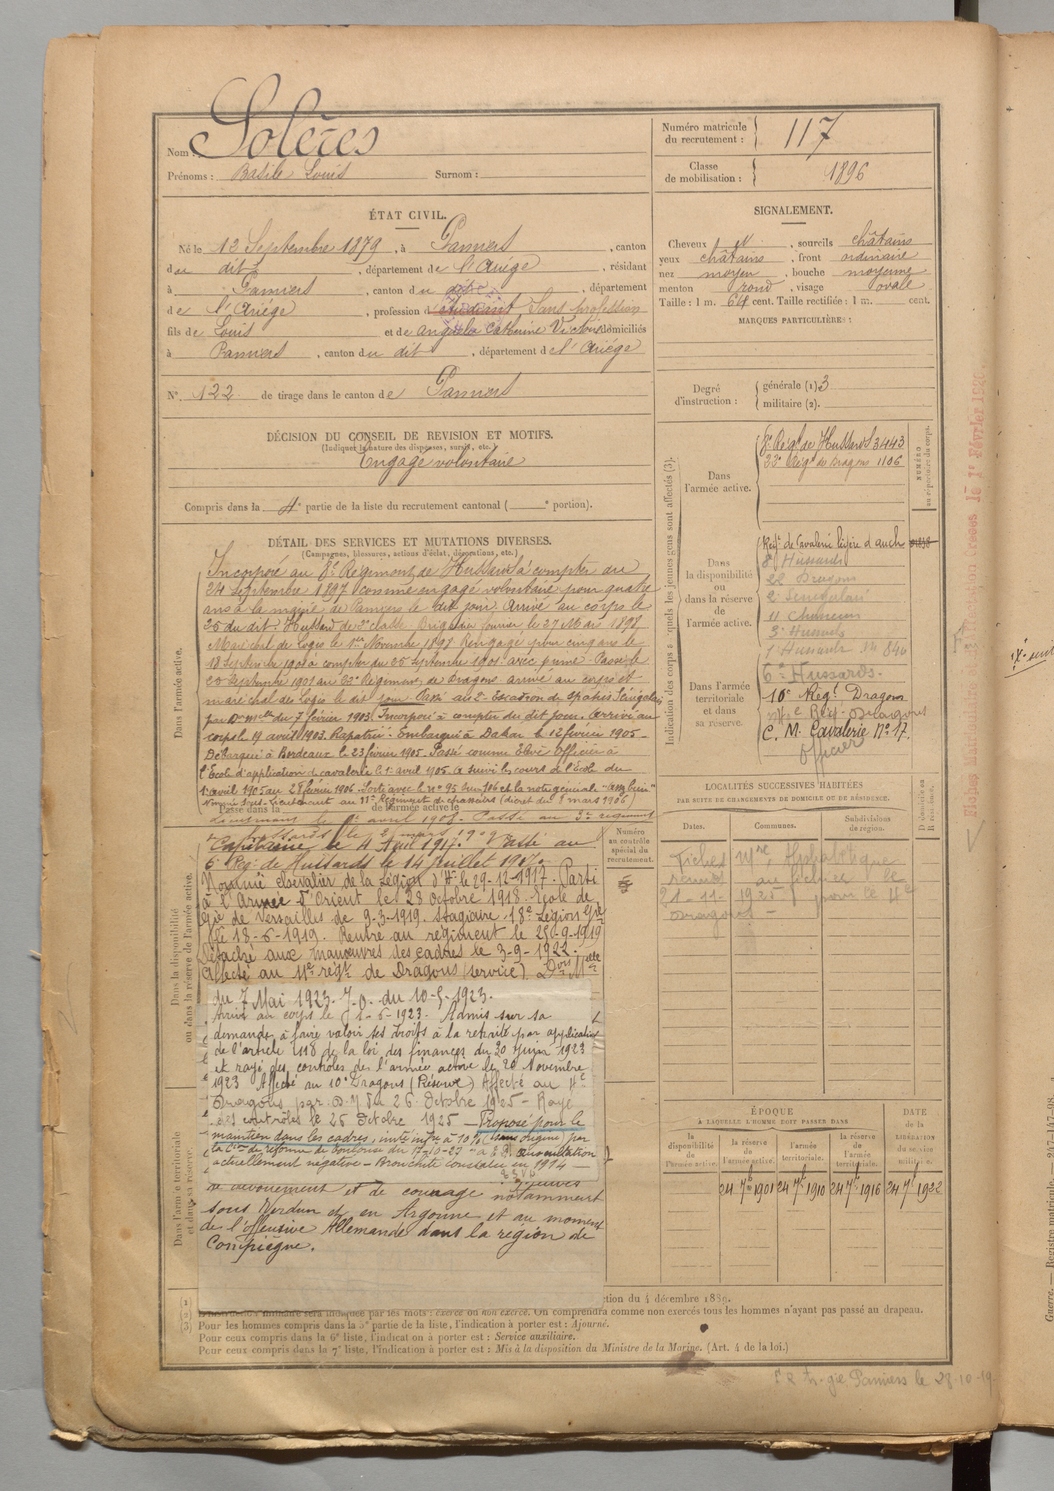 Nom : Solères
Prénoms : Basile Louis Surnom :
Numéro matricule du recrutement : 117
Classe de mobilisation : 1896
ÉTAT CIVIL.
Né le 12 Septembre 1879, à Pamiers, canton
du dit, département de l'Ariège, résidant
à Pamiers, canton du dit, département
de l'Ariège, profession d'étudiant Sans profession
fils de Louis et de Angela Catherine Victoire domiciliés
à Pamiers, canton du dit, département de l'Ariège
N° 122 de tirage dans le canton de Pamiers
SIGNALEMENT.
Cheveux et, sourcils châtains
yeux châtains, front ordinaire
nez moyen, bouche moyenne
menton rond, visage ovale
Taille : 1 m. 64 cent. Taille rectifiée : 1 m. cent.
MARQUES PARTICULIÈRES :
Degré d'instruction : générale (1) 3
militaire (2).
DÉCISION DU CONSEIL DE REVISION ET MOTIFS.
(Indiquer la nature des dispenses, sursis, etc.)
Engagé volontaire
Compris dans la 4e partie de la liste du recrutement cantonal ( e portion).
DÉTAIL DES SERVICES ET MUTATIONS DIVERSES.
(Campagnes, blessures, actions d'éclat, décorations, etc.)
Dans l'armée active.
Incorporé au 8e Régiment de Hussards à compter du
24 Septembre 1897 comme engagé volontaire pour quatre
ans à la mairie de Pamiers le dit jour. Arrivé au corps le
25 du dit. Hussard de 2e classe. Brigadier fourrier le 27 Mai 1898
Maréchal de Logis le 1er Novembre 1898 Rengagé pour cinq ans le
18 Septembre 1901 à compter du 25 Septembre 1901 avec prime. Passé le
20 Septembre 1901 au 22e Régiment de Dragons arrivé au corps et
maréchal des Logis le dit jour. Passé au 2e Escadron de Spahis Sénégalais
par Don mlle du 7 février 1903. Incorporé à compter du dit jour. Arrivé au
corps le 19 avril 1903. Rapatrié. Embarqué à Dakar le 12 février 1905 -
Débarqué à Bordeaux le 23 février 1905. Passé comme Elève officier à
l'Ecole d'application de cavalerie le 1er avril 1905. A suivi les cours de l'Ecole du
1er avril 1905 au 28 février 1906. Sorti avec le no 95 sur 106 et la note générale "assez bien"
Nommé Sous-Lieutenant au 11e Régiment de chasseurs (décret du 8 mars 1906)
Passé dans la de l'armée active le
Lieutenant le 1er avril 1908. Passé au 3e régiment
de hussards le 2 mars 1909
Dans la disponibilité ou dans la réserve de l'armée active.
Capitaine le 4 Avril 1917. Passé au
6e Rég. de Hussards le 14 Juillet 1917.
Nommé chevalier de la Légion d'Hr le 29-12-1917. Parti
à l'Armée d'Orient le 28 Octobre 1918. Ecole de
Gie de Versailles de 9-3-1919. Stagiaire 18e Légion Gie
le 18-6-1919. Rentré au régiment le 25-9-1919
Détaché aux manœuvres des cadres le 3-9-1922.
Affecté au 11e régt de Dragons (service) Don Mlle
du 7 Mai 1923. J.O. du 10-5-1923.
Arrivé au corps le 1-6-1923. Admis sur sa
demande à faire valoir ses droits à la retraite par application
de l'article 118 de la loi des finances du 30 Juin 1923
et rayé des contrôles de l'armée active le 20 Novembre
1923 Affecté au 10e Dragons (Réserve) Affecté au 4e
Dragons par D.M du 26 Octobre 1925 - Rayé
des contrôles le 26 Octobre 1925 - Proposé pour le
maintien dans les cadres, invté infre à 10% (sans origine) par
la Con de réforme de Toulouse du 17-10-29
actuellement négative - Bronchite constatée en 1914 -
Dans l'armée territoriale et dans sa réserve.
de dévouement et de courage notamment
sous Verdun et en Argonne et au moment
de l'offensive Allemande dans la région de
Compiègne.
Numéro au contrôle spécial du recrutement.
Indication des corps auxquels les jeunes gens sont affectés (3).
NUMÉRO au répertoire du corps.
Dans l'armée active.
8e Régt de Hussards 3443
22e Régt de Dragons 1106
Dans la disponibilité ou dans la réserve de l'armée active.
Régt de Cavalerie légère d'Auch
8e Hussards
22 Dragons
2 Sénégalais
11 Chasseurs
3e Hussards
Dans l'armée territoriale et dans sa réserve.
6e Hussards.
10e Régt Dragons
C. M. Cavalerie No 17.
Officier
LOCALITÉS SUCCESSIVES HABITÉES
PAR SUITE DE CHANGEMENTS DE DOMICILE OU DE RÉSIDENCE.
Dates. Communes. Subdivisions de région. D. Domicile ou R. Résidence.
Fiches mle Alphabétique
remises au fichier le
21-11-1925 pour le 4e
Dragons -
ÉPOQUE
À LAQUELLE L'HOMME DOIT PASSER DANS
la disponibilité de l'armée active. la réserve de l'armée active. l'armée territoriale. la réserve de l'armée territoriale. DATE de la LIBÉRATION du service militaire.
24 7bre 1901 24 7bre 1910 24 7bre 1916 24 7bre 1922
(1) ction du 4 décembre 1889.
(2) L'instruction militaire sera indiquée par les mots : exercé ou non exercé. On comprendra comme non exercés tous les hommes n'ayant pas passé au drapeau.
(3) Pour les hommes compris dans la 5e partie de la liste, l'indication à porter est : Ajourné.
Pour ceux compris dans la 6e liste, l'indication à porter est : Service auxiliaire.
Pour ceux compris dans la 7e liste, l'indication à porter est : Mis à la disposition du Ministre de la Marine. (Art. 4 de la loi.)
gie Pamiers le 28-10-19